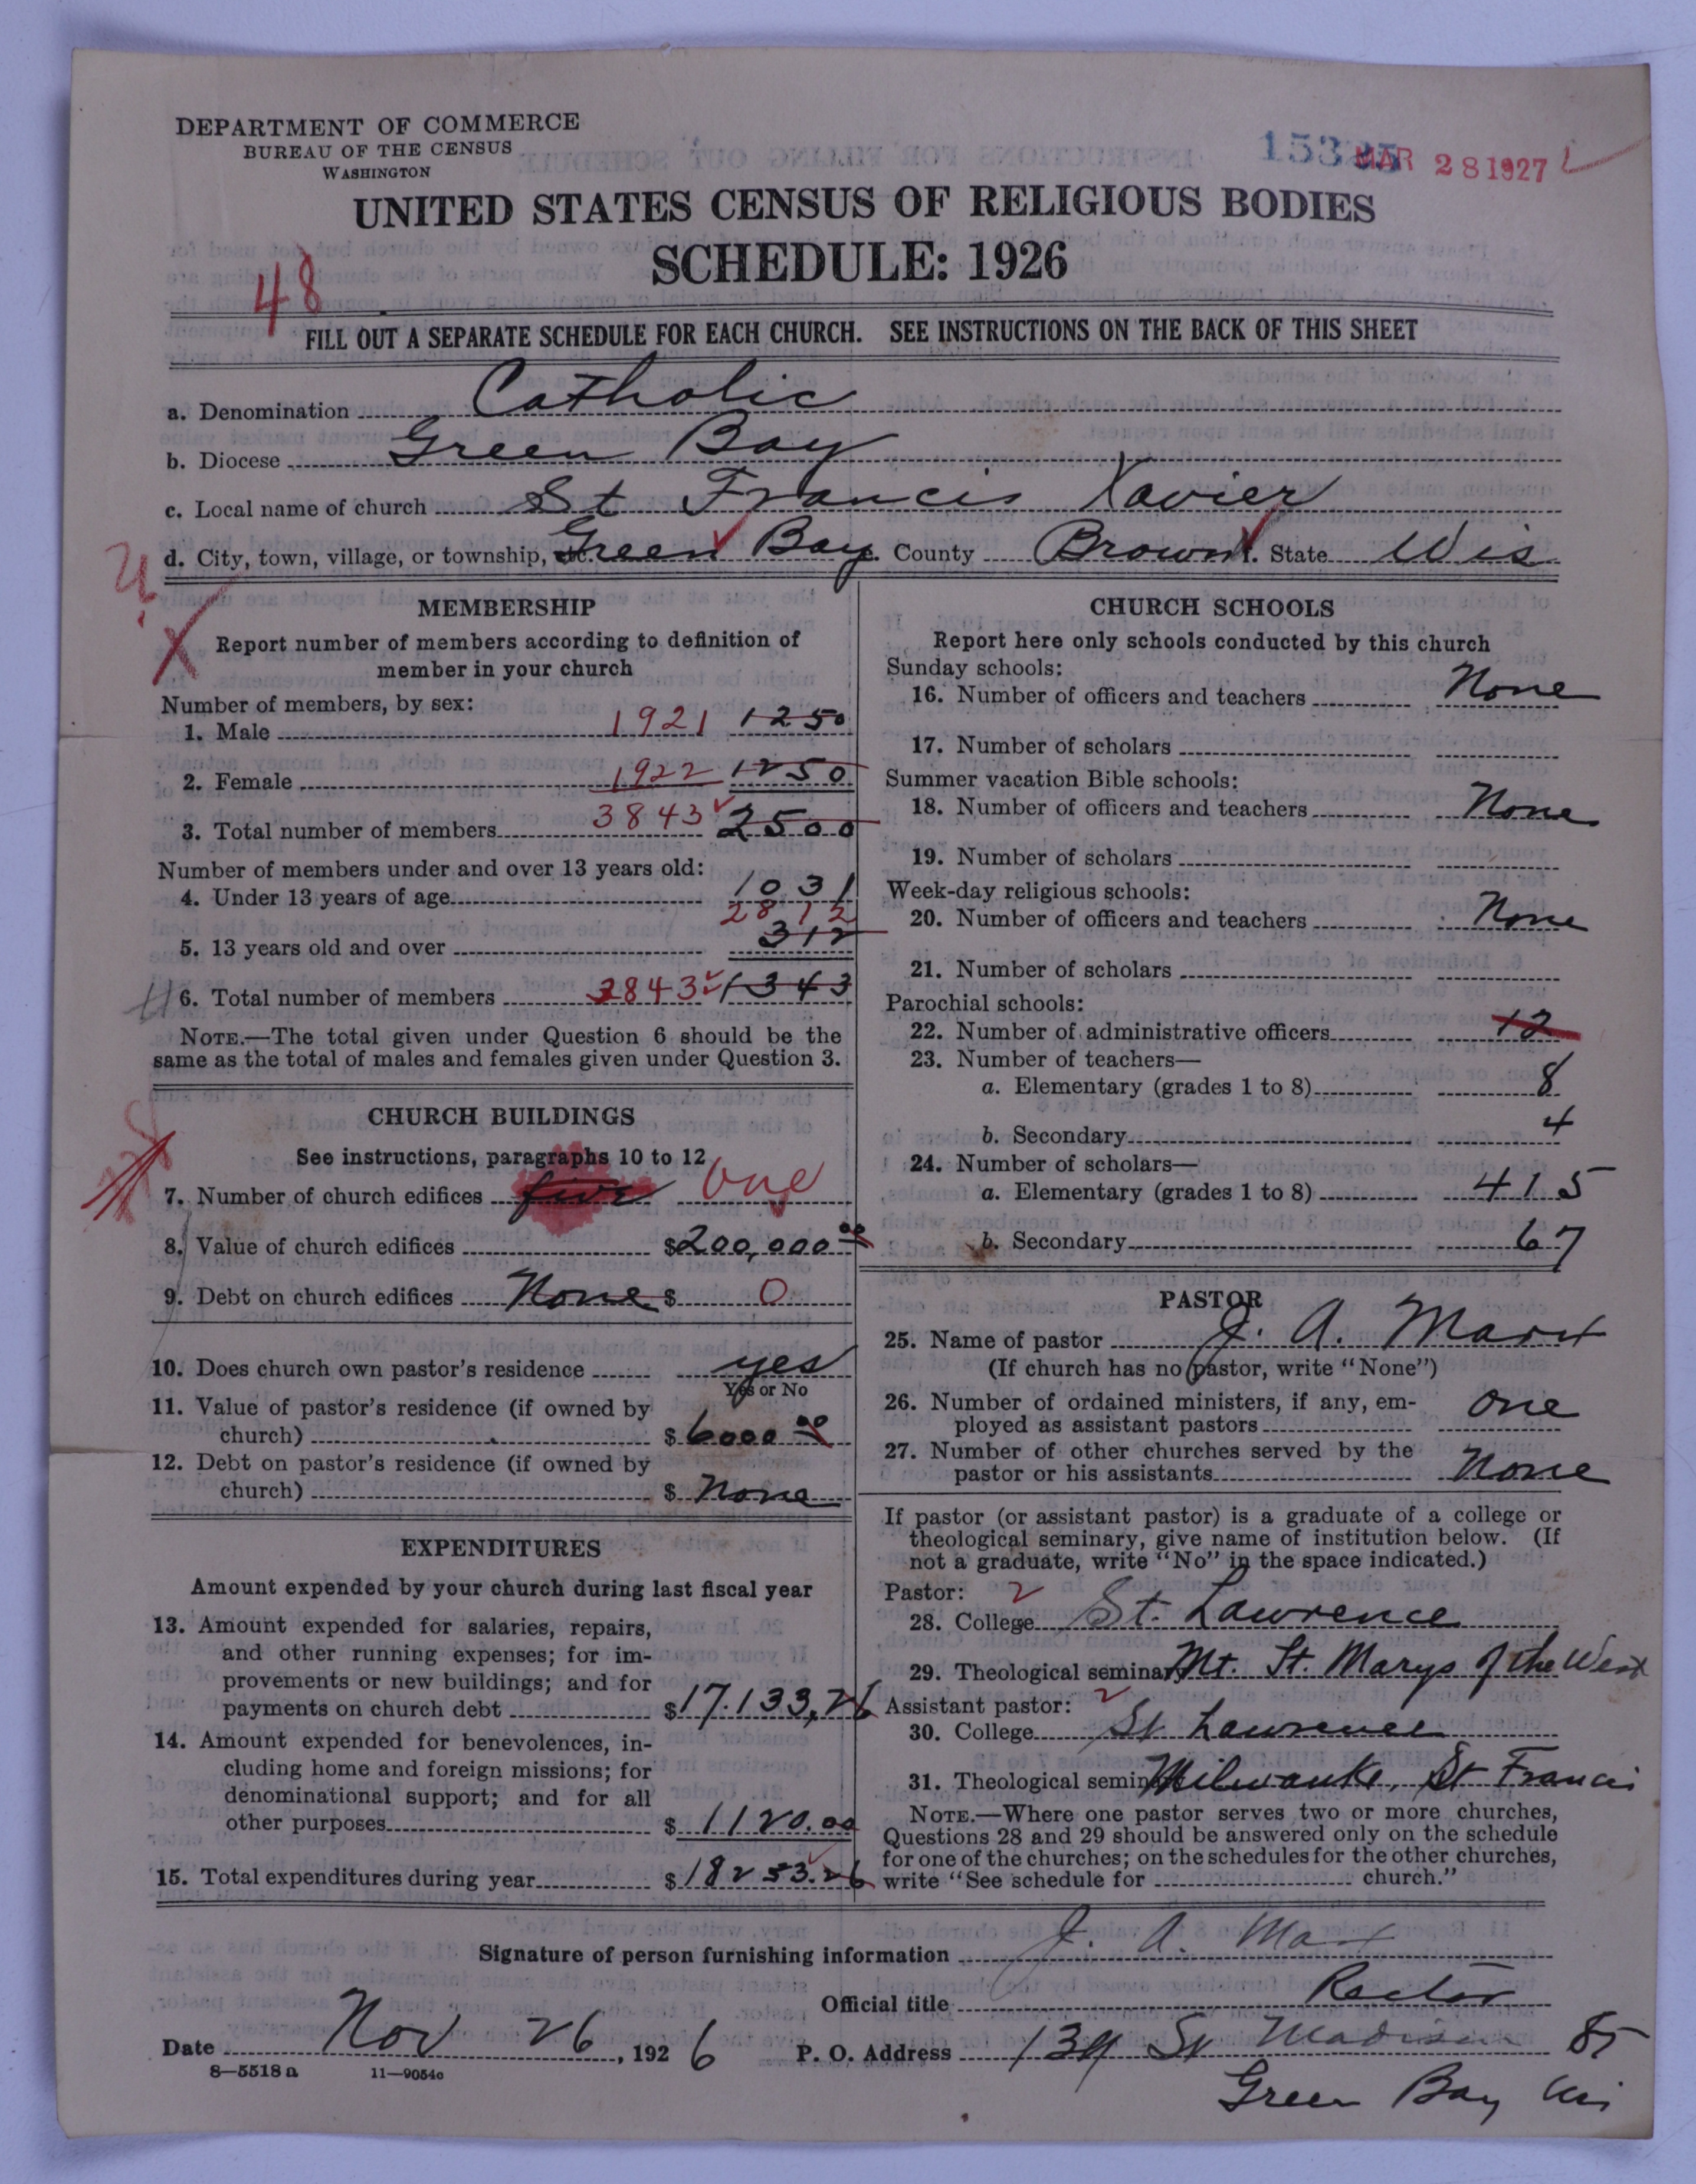 DEPARTMENT OF COMMERCE
BUREAU OF THE CENSUS
WASHINGTON
MAR 28 1927
UNITED STATES CENSUS OF RELIGIOUS BODIES
SCHEDULE: 1926
48
FILL OUT A SEPARATE SCHEDULE FOR EACH CHURCH. SEE INSTRUCTIONS ON THE BACK OF THIS SHEET
a. Denomination Catholic
b. Diocese Green Bay
c. Local name of church St Francis Xavier
d. City, town, village, or township, etc. Green Bay e. County Brown f. State Wis
MEMBERSHIP
Report number of members according to definition of
member in your church
Number of members, by sex:
1. Male 1921 1250
2. Female 1922 1250
3. Total number of members 3843 2500
Number of members under and over 13 years old:
4. Under 13 years of age 1031
2812
5. 13 years old and over 312
6. Total number of members 3843 1343
NOTE.—The total given under Question 6 should be the
same as the total of males and females given under Question 3.
CHURCH BUILDINGS
See instructions, paragraphs 10 to 12
7. Number of church edifices five one
8. Value of church edifices $200,000 00
9. Debt on church edifices None $ 0
10. Does church own pastor's residence yes
Yes or No
11. Value of pastor's residence (if owned by
church) $ 6000 00
12. Debt on pastor's residence (if owned by
church) $ None
EXPENDITURES
Amount expended by your church during last fiscal year
13. Amount expended for salaries, repairs,
and other running expenses; for im-
provements or new buildings; and for
payments on church debt $17.133,26
14. Amount expended for benevolences, in-
cluding home and foreign missions; for
denominational support; and for all
other purposes $ 1120.00
15. Total expenditures during year $18253.26
CHURCH SCHOOLS
Report here only schools conducted by this church
Sunday schools:
16. Number of officers and teachers None
17. Number of scholars
Summer vacation Bible schools:
18. Number of officers and teachers None
19. Number of scholars
Week-day religious schools:
20. Number of officers and teachers None
21. Number of scholars
Parochial schools:
22. Number of administrative officers 12
23. Number of teachers—
a. Elementary (grades 1 to 8) 8
b. Secondary 4
24. Number of scholars—
a. Elementary (grades 1 to 8) 415
b. Secondary 67
PASTOR
25. Name of pastor J. A. Marx
(If church has no pastor, write "None")
26. Number of ordained ministers, if any, em-
ployed as assistant pastors one
27. Number of other churches served by the
pastor or his assistants None
If pastor (or assistant pastor) is a graduate of a college or
theological seminary, give name of institution below. (If
not a graduate, write "No" in the space indicated.)
Pastor: 2
28. College St. Lawrence
29. Theological seminary Mt. St. Marys of the West
Assistant pastor: 2
30. College St Lawrence
31. Theological seminary Milwauke, St Francis
NOTE.—Where one pastor serves two or more churches,
Questions 28 and 29 should be answered only on the schedule
for one of the churches; on the schedules for the other churches,
write "See schedule for church."
Signature of person furnishing information J. A. Marx
Official title Rector
Date Nov 26, 1926 P. O. Address Madison
Green Bay Wis
8—5518 a 11—9054c